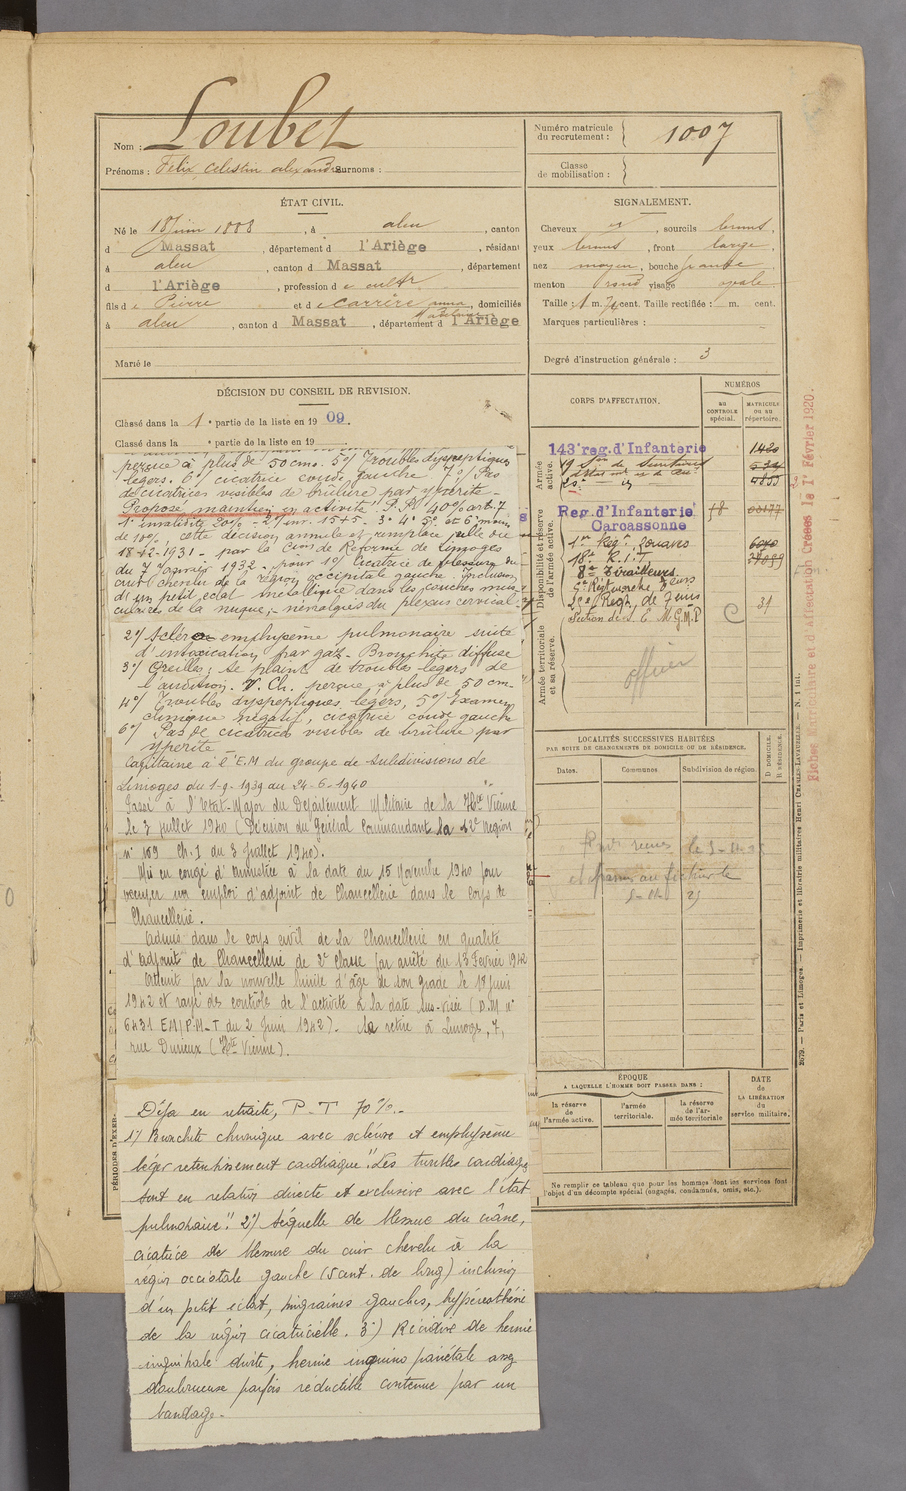 Nom : Loubet
Prénoms : Félix, Célestin Alexandre Surnoms :
Numéro matricule du recrutement : 1007
Classe de mobilisation :
ÉTAT CIVIL.
Né le 18 Juin 1888, à aleu, canton
d Massat, département d l'Ariège, résidant
à aleu, canton d Massat, département
d l'Ariège, profession de cultr
fils de Pierre et de Carrère anna, domiciliés
à aleu, canton d Massat, département d l'Ariège
Marié le
SIGNALEMENT.
Cheveux et, sourcils bruns,
yeux bruns, front large,
nez moyen, bouche grande,
menton rond visage ovale
Taille : 1 m. cent. Taille rectifiée : m. cent.
Marques particulières :
Degré d'instruction générale : 3
DÉCISION DU CONSEIL DE REVISION.
Classé dans la 1e partie de la liste en 1909.
Classé dans la e partie de la liste en 19
perçue à plus de 50 cms. 5°/ Troubles dyspeptiques
légers. 6°/ cicatrice coude gauche 7°/ Pas
de cicatrices visibles de brûlure par ypérite -
Proposé maintien en activité P.P. 40% art. 7
1° invalidité 20% - 2° inv. 15+5 - 3° 4° 5° et 6° moins
de 10%, cette décision annule et remplace celle du
18-12-1931 - par la Cion de Réforme de Limoges
du 7 Janvier 1932 - pour 1°/ cicatrice de blessure du
cuir chevelu de la région occipitale gauche, inclusion
d'un petit éclat métallique dans les couches mus-
culaires de la nuque, - névralgies du plexus cervical -
2°/ Sclérose emphysème pulmonaire suite
d'intoxication par gaz - Bronchite diffuse
3°/ Oreilles ; se plaint de troubles légers de
l'audition. V. Ch. perçue à plus de 50 cm -
4°/ Troubles dyspeptiques légers, 5°/ Examen
clinique négatif, cicatrice coude gauche
6°/ Pas de cicatrices visibles de brûlure par
ypérite -
Capitaine à l'E.M du groupe de Subdivisions de
Limoges du 1-9-1939 au 24-6-1940
Passé à l'Etat-Major du Département Militaire de la Hte Vienne
le 3 juillet 1940 (Décision du Général Commandant la 12e Région
n° 109 Ch. I du 3 Juillet 1940).
Mis en congé d'armistice à la date du 15 Novembre 1940 pour
occuper un emploi d'adjoint de Chancellerie dans le corps de
Chancellerie.
Admis dans le corps civil de la Chancellerie en qualité
d'adjoint de Chancellerie de 2e Classe par arrêté du 13 Février 1942
Atteint par la nouvelle limite d'âge de son grade le 18 Juin
1942 et rayé des contrôles de l'activité à la date sus-visée (D.M. n°
6431 EM/P.M-T du 2 Juin 1942). Se retire à Limoges, 7,
rue Durieux (Hte Vienne).
Déja en retraite, P-T 70%.-
1°/ Bronchite chronique avec sclérose et emphysème
léger retentissement cardiaque "Les troubles cardiaques
sont en relation directe et exclusive avec l'état
pulmonaire". 2°/ Séquelle de blessure du crâne,
cicatrice de blessure du cuir chevelu à la
région occipitale gauche (5 cent. de long) inclusion
d'un petit éclat, migraines gauches, hypéresthésie
de la région cicatricielle. 3°) Récidive de hernie
inguinale droite, hernie inguino pariétale assez
douloureuse parfois réductible contenue par un
bandage.-
PÉRIODES D'EXER-
CORPS D'AFFECTATION.
NUMÉROS
AU CONTROLE spécial.
MATRICULE OU AU répertoire.
Armée active.
143e rég. d'Infanterie 1420
19e Son de Secrétaires
d'Etat
20e
Disponibilité et réserve de l'armée active.
Rég. d'Infanterie
Carcassonne
1er Régt Zouaves
18e R.I.T.
8e Tirailleurs.
Régt de Zouaves
Section de S. E. M G.M.P C 31
Armée territoriale et sa réserve.
officier
LOCALITÉS SUCCESSIVES HABITÉES
PAR SUITE DE CHANGEMENTS DE DOMICILE OU DE RÉSIDENCE.
Dates. Communes Subdivision de région.
D DOMICILE.
R RÉSIDENCE.
ÉPOQUE
A LAQUELLE L'HOMME DOIT PASSER DANS :
la réserve de l'armée active.
l'armée territoriale.
la réserve de l'armée territoriale
DATE de LA LIBÉRATION du service militaire.
Ne remplir ce tableau que pour les hommes dont les services font
l'objet d'un décompte spécial (engagés, condamnés, omis, etc.).
Fiches Matriculaire et d'Affectation Créées le 1er Février 1920.
2079. — Paris et Limoges. — Imprimerie et librairie militaires Henri CHARLES-LAVAUZELLE. — N. 1 int.